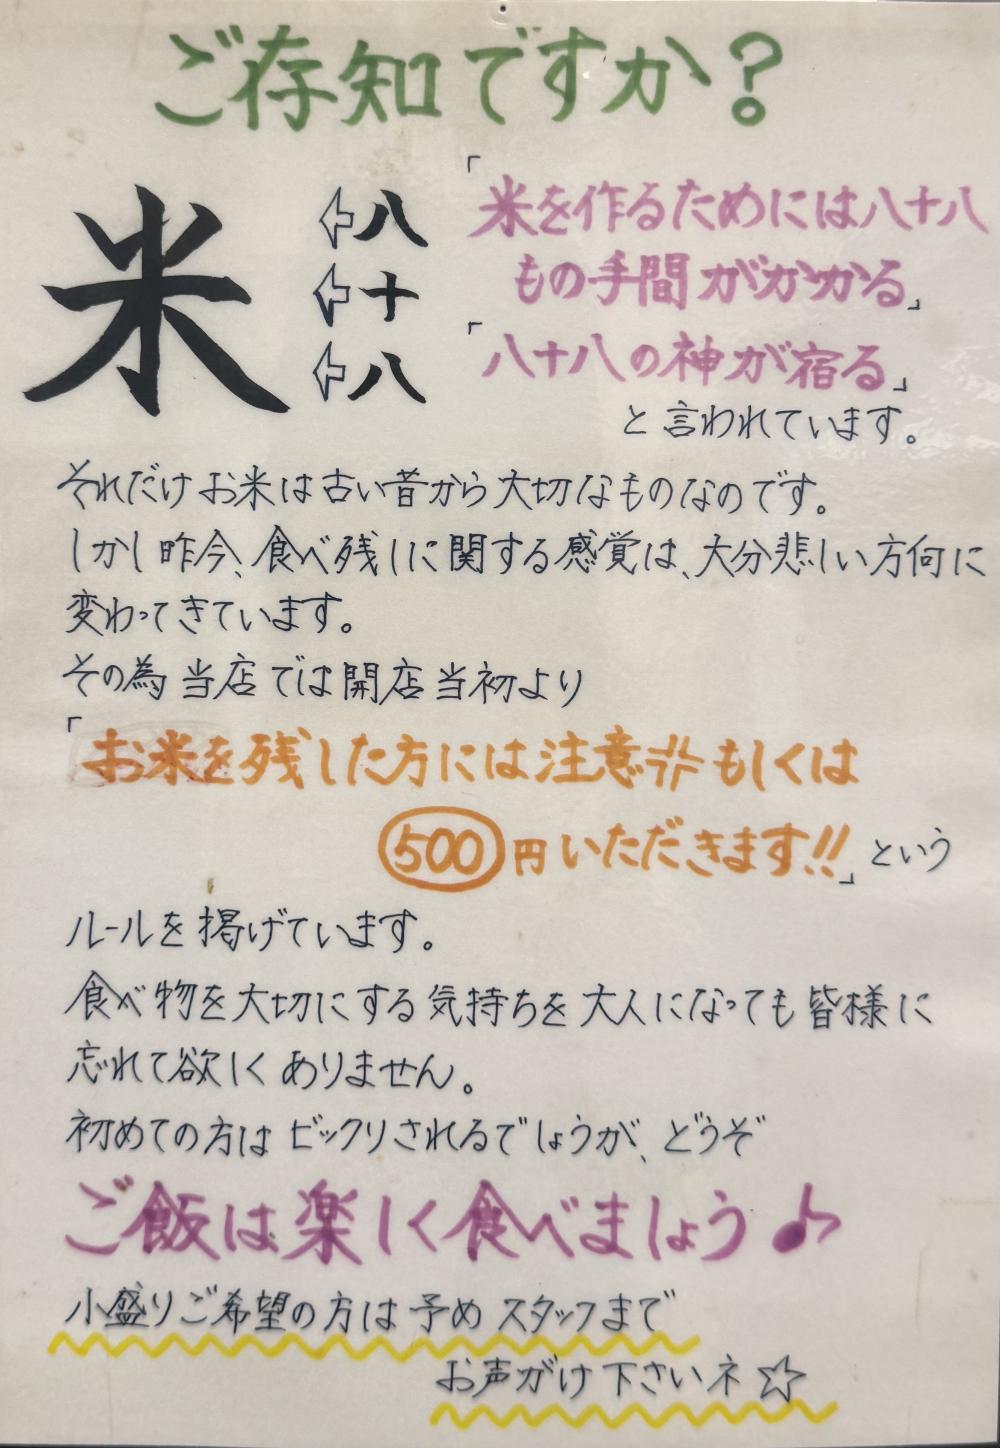 ご存知ですか?
米
⇦八
⇦十
⇦八
「米を作るためには八十八
もの手間がかかる」
「八十八の神が宿る」
と言われています。
それだけお米は古い昔から大切なものなのです。
しかし昨今、食べ残しに関する感覚は、大分悲しい方向に
変わってきています。
その為当店では開店当初より
「お米を残した方には注意💢もしくは
500円いただきます!!」という
ルールを掲げています。
食べ物を大切にする気持ちを大人になっても皆様に
忘れて欲しくありません。
初めての方はビックリされるでしょうが、どうぞ
ご飯は楽しく食べましょう♪
小盛りご希望の方は予めスタッフまで
お声がけ下さいネ☆